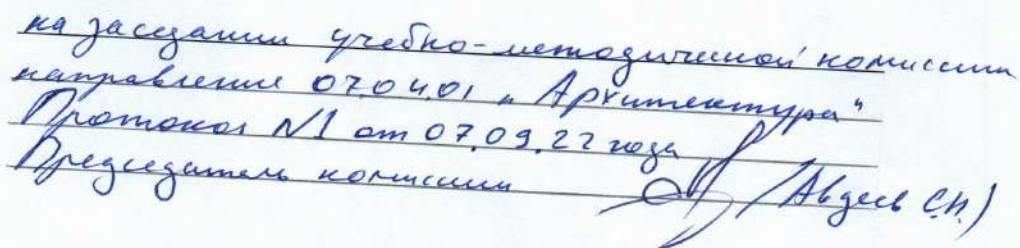 на заседании учебно-методической комиссии
направление 07.04.01 „Архитектура"
Протокол N1 от 07.09.22 года
Председатель комиссии /Авдеев С.Н.)